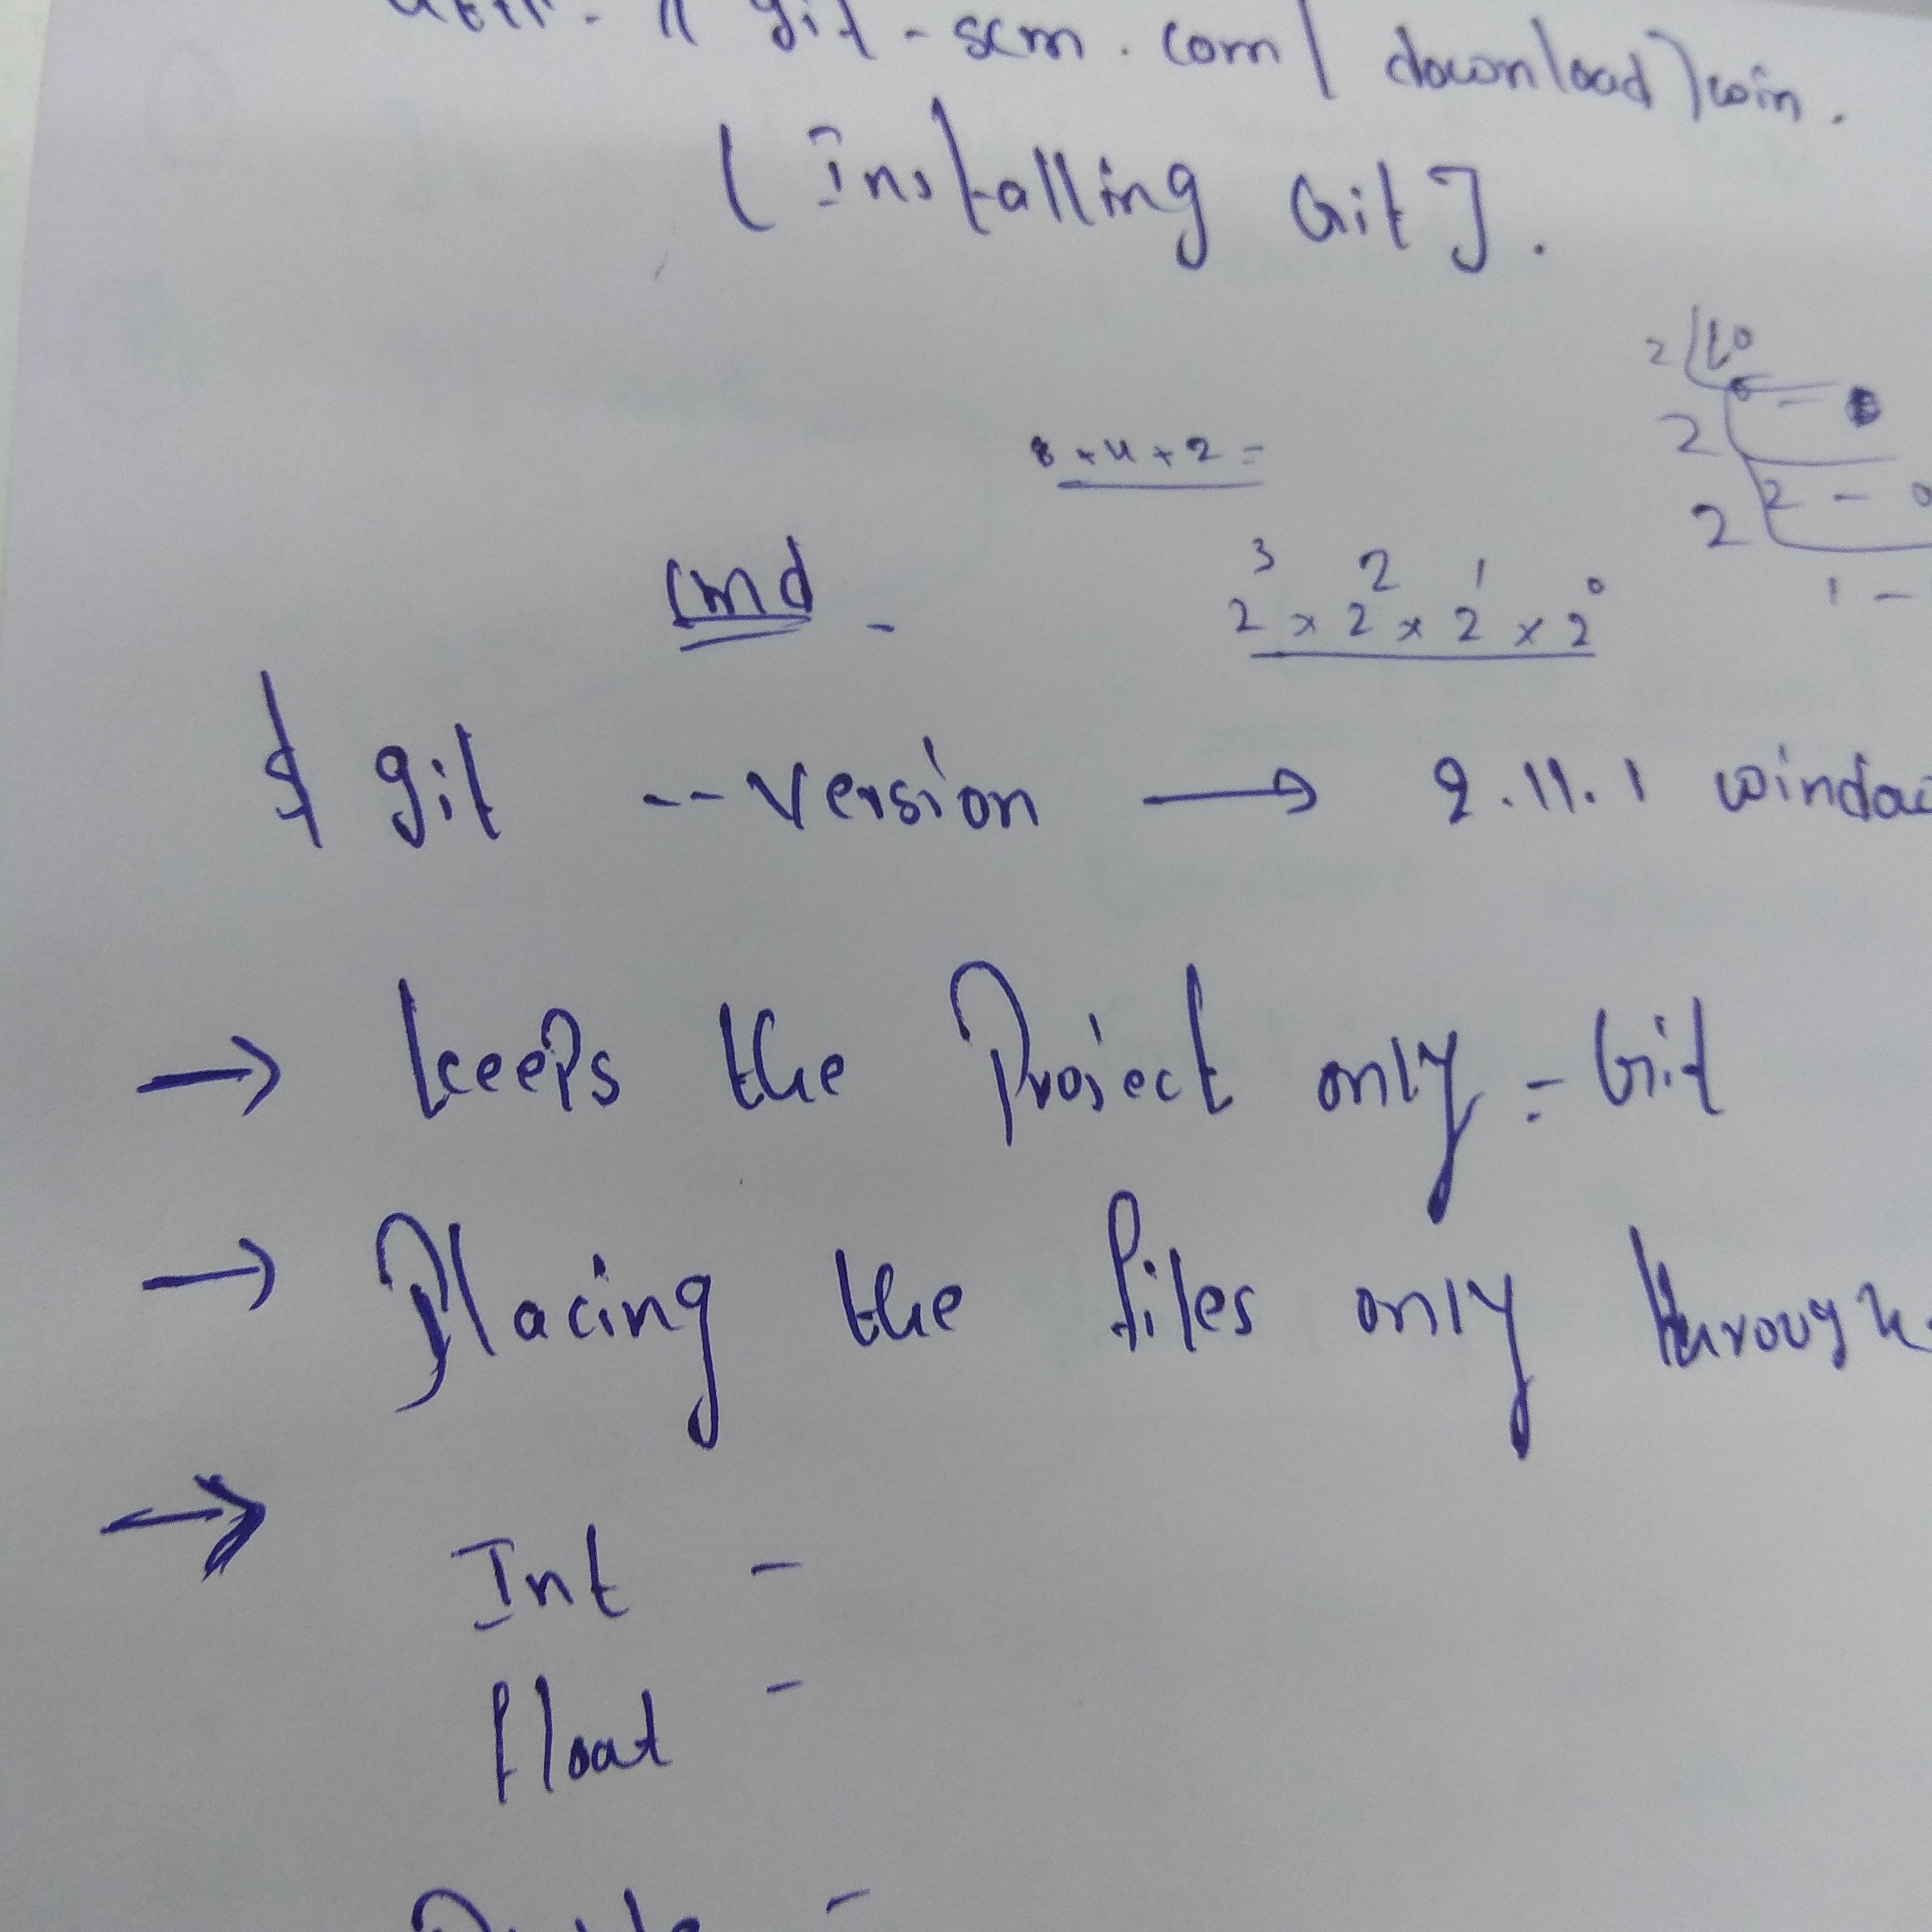 git-scm.com/download/win.
[Installing Git].
2 10
2
2 2 - 0
1 -
8+4+2=
cmd -
3 2 1 0
2 x 2 x 2 x 2
$ git --version → 2.11.1 window
→ keeps the Project only = Git
→ Placing the files only through
→
Int -
float -